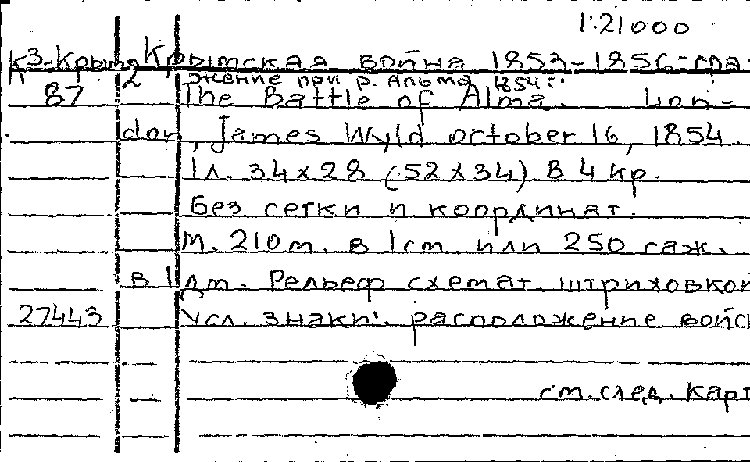 1:21000
К3-Крым Крымская война 1853-1856-
К 2 жение при р. Альма 1854 г.
87 The Battle of Alma. Lon-
don, James Wyld october 16, 1854.
1 л. 34x28 (52x34) в 4 кр.
Без сетки и координат.
М. 210 м. в 1 см или 250 саж.
в 1 дм. Рельеф схемат. штриховкой
27443 Усл. знаки: расположение войс
см. след. карт